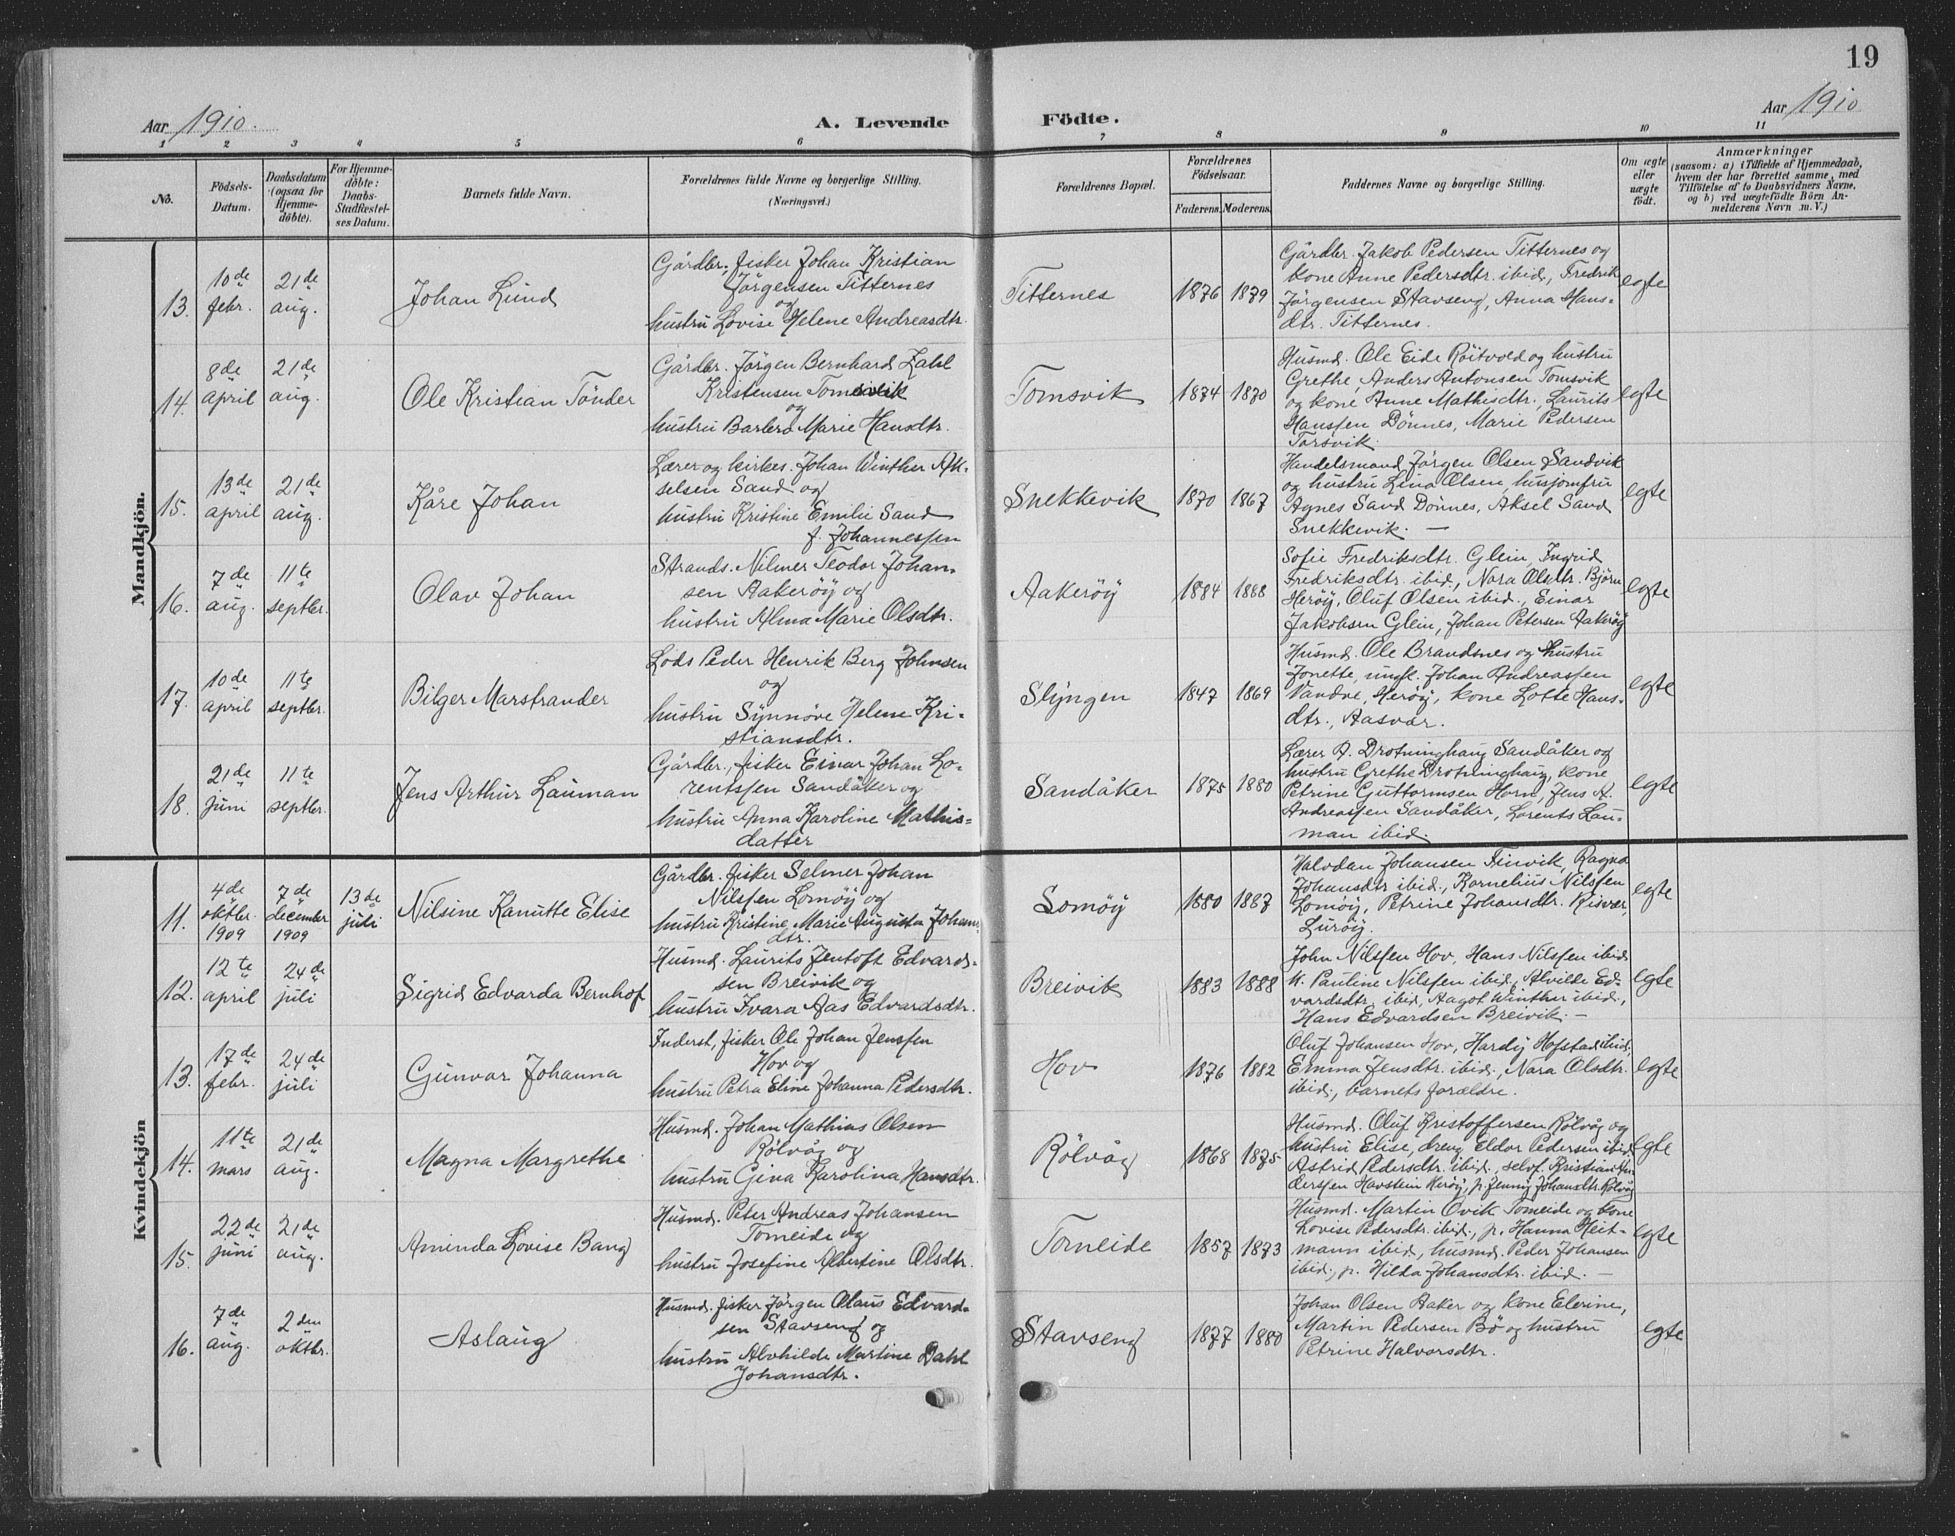 19
Aar 1910. A. Levende Födte. Aar 1910
1 2 3 4 5 6 7 8 9 10 11
No. Födsels-Datum. Daabsdatum (ogsaa for Hjemmedöbte). For Hjemmedöbte: Daabs-Stadfæstelses Datum. Barnets fulde Navn. Forældrenes fulde Navne og borgerlige Stilling. (Næringsvei.) Forældrenes Bopæl. Forældrenes Födselsaar. Faderens. Moderens. Faddernes Navne og borgerlige Stilling. Om ægte eller uægte födt. Anmærkninger
(saasom: a) i Tilfælde af Hjemmedaab,
hvem der har forrettet samme, med
Tilföielse af to Daabsvidners Navne,
og b) ved uægtefödte Börn An-
melderens Navn m. V.)
Mandkjön.
13. 10de febr. 21de aug. Johan Lund
Gårdbr. fisker Johan Kristian
Jörgensen Titternes
og
hustru Lovise Helene Andreasdtr.
Titternes 1876 1879
Gårdbr. Jakob Pedersen Titternes og
kone Anne Pedersdtr. ibid, Fredrik
Jörgensen Stavseng, Anna Hans-
dtr. Titternes.
egte
14. 8de april 21de aug. Ole Kristian Tönder
Gårdbr. Jörgen Bernhard Zahl
Kristensen Tomsvik
og
hustru Barbro Marie Hansdtr.
Tomsvik 1874 1870
Husmd. Ole Eide Röitvold og hustru
Grethe, Anders Antonsen Tomsvik
og kone Anne Mathisdtr., Laurits
Hanssen Dönnes, Marie Pedersen
Torsvik.
egte
15. 13de april 21de aug. Kåre Johan
Lærer og kirkes. Johan Winther Ak-
selsen Sand og
hustru Kristine Emilie Sand
f. Johannessen
Snekkevik 1870 1867
Handelsmand Jörgen Olsen Sandvik
og hustru Lina Olsen, husjomfru
Agnes Sand Dönnes, Aksel Sand
Snekkevik. —
egte
16. 7de aug. 11te septbr. Olav Johan
Strands. Nilmer Teodor Johan-
sen Aakeröy og
hustru Alma Marie Olsdtr.
Aakeröy 1884 1888
Sofie Fredriksdtr. Glein Ingrid
Fredriksdtr. ibid., Nora Olsdtr. Björn
Heröy, Oluf Olsen ibid., Einar
Jakobsen Glein, Johan Petersen Aakeröy
egte
17. 10de april 11te septbr. Bilger Marstrander
Lods Peder Henrik Berg Johnsen
og
hustru Synnöve Helene Kri-
stiansdtr.
Slyngen 1847 1869
Husmd. Ole Brandsnes og hustru
Jonette, ungk. Johan Andreassen
Vandve, Heröy, kone Lotte Hans-
dtr., Aasvær.
egte
18. 21de juni 11te septbr. Jens Arthur Lauman
Gårdbr., fisker Einar Johan Lo-
rentssen Sandåker og
hustru Anna Karoline Mathis-
datter
Sandåker 1875 1880
Lærer A. Drotninghaug Sandåker og
hustru Grethe Drotninghaug, kone
Petrine Guttormsen Horn, Jens A.
Andreassen Sandåker, Lorents Lau-
man ibid.
egte
Kvindekjön
11. 4de oktbr. 1909 7de december 1909 13de juli Nilsine Kanutte Elise
Gårdbr. fisker Selmer Johan
Nilssen Lomöy og
hustru Kristine Marie Augusta Johans-
dtr.
Lomöy 1880 1887
Halvdan Johansen Finvik, Ragna
Johansdtr ibid., Kornelius Nilssen
Lomöy, Petrine Johansdtr. Kisvær,
Luröy.
egte
12. 12te april 24de juli Sigrid Edvarda Bernhof
Husmd. Laurits Jentoft Edvard-
sen Breivik og
hustru Ivara Aas Edvardsdtr.
Breivik 1883 1888
John Nilssen Hov, Hans Nilssen ibid
k. Pauline Nilssen ibid, Alvilde Ed-
vardsdtr. ibid, Aagot Winther ibid.,
Hans Edvardsen Breivik. —
egte
13. 17de febr. 24de juli Gunvor Johanna
Inderst, fisker Ole Johan Jenssen
Hov og
hustru Petra Eline Johanna Pedersdtr.
Hov 1876 1882
Oluf Johansen Hov, Hardy Hofstad ibid,
Emma Jensdtr. ibid, Nora Olsdtr.
ibid., barnets forældre.
egte
14. 11te mars 21de aug. Magna Margrethe
Husmd. Johan Mathias Olsen
Rölvåg og
hustru Gina Karolina Hansdtr.
Rölvåg 1868 1875
Husmd. Oluf Kristoffersen Rölvåg og
hustru Elise, dreng Eldor Pedersen ibid
Astrid Pedersdtr. ibid., selvf. Kristian An-
derssen Havstein Heröy, p. Jenny Johansdtr. Rölvåg
egte
15. 22de juni 21de aug. Aminda Lovise Bang
Husmd. Peter Andreas Johansen
Tomeide og
hustru Josefine Albertine Olsdtr.
Tomeide 1857 1873
Husmd. Martin Ovik Tomeide og kone
Lovise Pedersdtr. ibid., p. Hanna Heit-
mann ibid, husmd. Peder Johansen
ibid., p. Hilda Johansdtr. ibid. —
egte
16. 7de aug. 2den oktbr. Aslaug
Husmd. fisker Jörgen Olaus Edvard-
sen Stavseng og
hustru Alvhilde Martine Dahl
Johansdtr.
Stavseng 1877 1880
Johan Olsen Aaker og kone Elerine,
Martin Pedersen Bö og hustru
Petrine Halvorsdtr.
egte